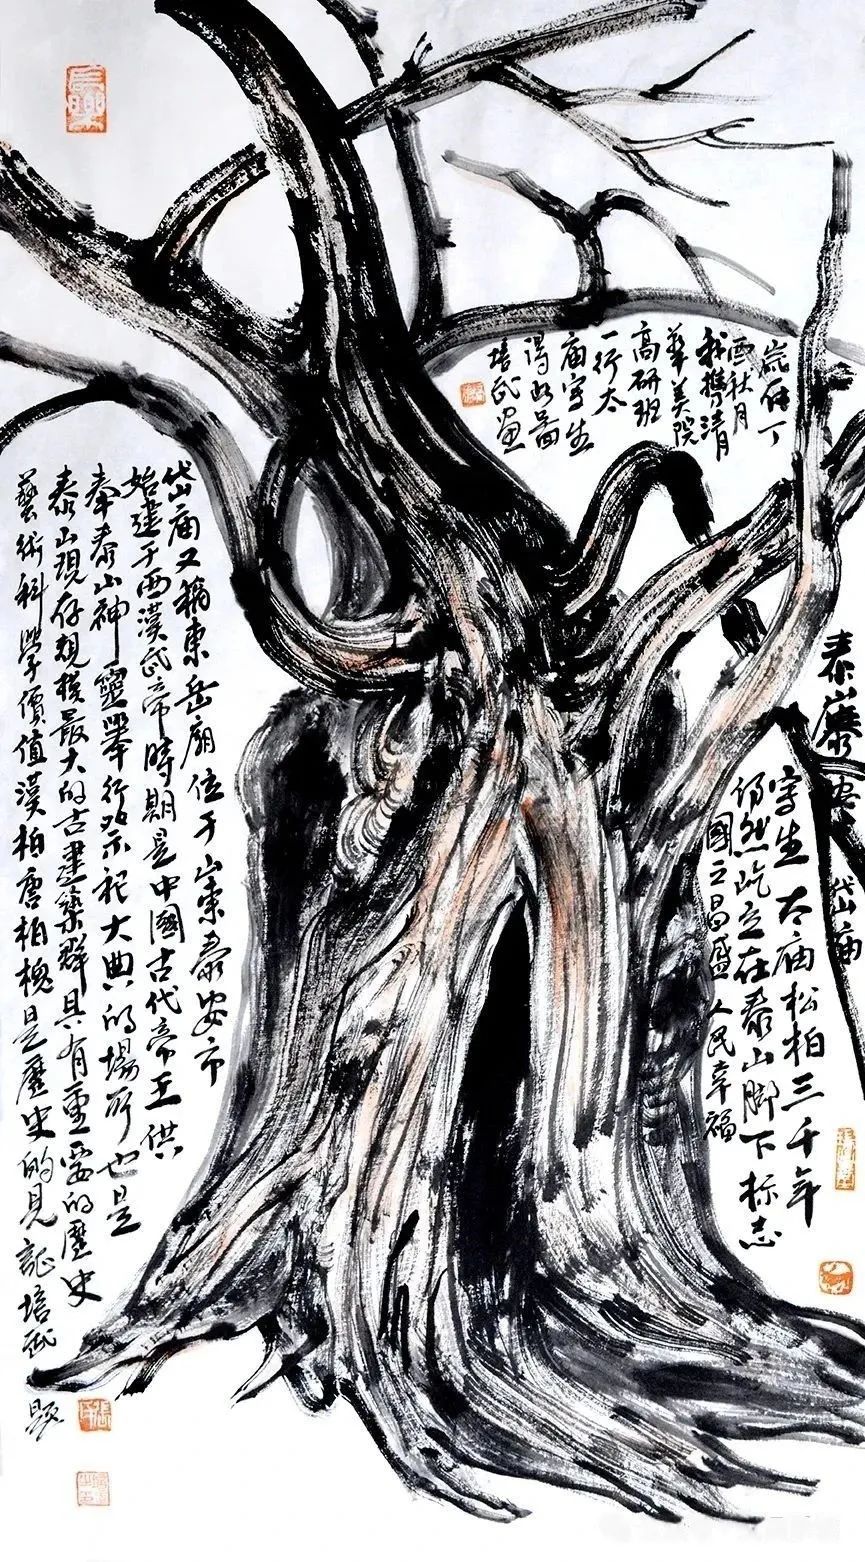 泰山
岱庙
写生太庙松柏三千年
仍然屹立在泰山脚下标志
國之昌盛人民幸福
岁在丁
酉秋月
我携清
華美院
高研班
一行太
庙写生
得此图
培武画
岱庙又稱東岳廟位于山東泰安市
始建于西漢武帝時期是中國古代帝王供
奉泰山神靈舉行祭祀大典的場所也是
泰山現存規模最大的古建築群具有重要的歷史
藝術科學價值漢柏唐柏槐是歷史的見証培武
题
長樂